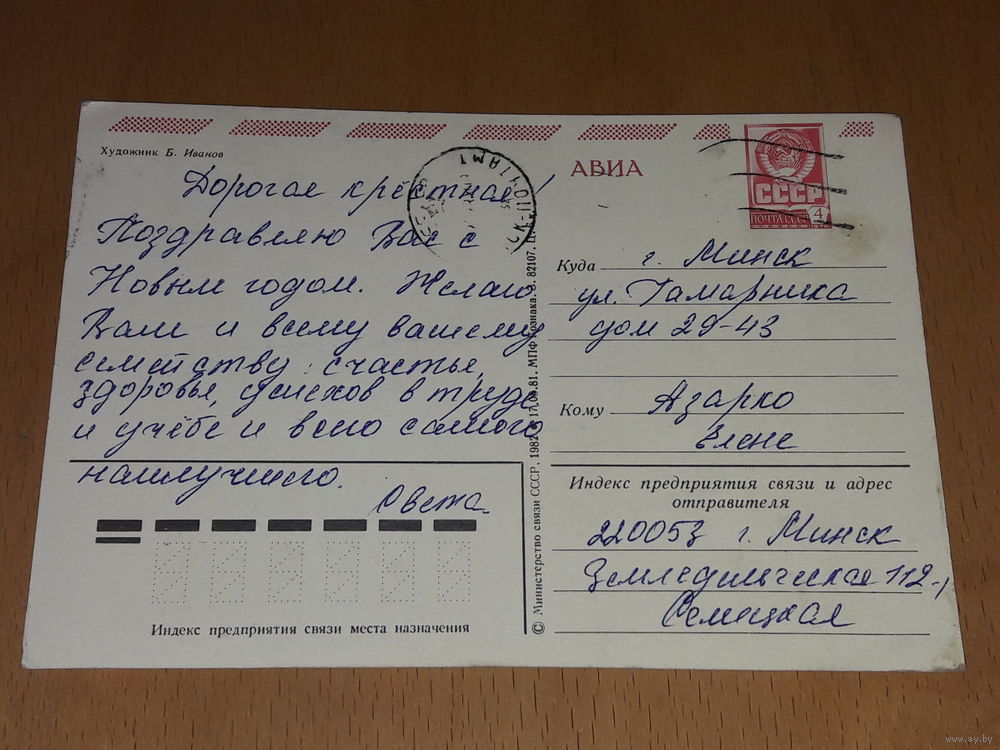 Художник Б. Иванов
Дорогая крёстная!
Поздравляю Вас с
Новым годом. Желаю
Вам и всему вашему
семейству: счастье,
здоровье, успехов в труде
и учёбе и всего самого
наилучшего.
Света.
Индекс предприятия связи места назначения
© Министерство связи СССР, 1982. 17.09.81. МПФ Гознака. З. 82107. Ц
АВИА
СССР
ПОЧТА СССР 4
Куда г. Минск
ул. Тамарника
дом 29-43
Кому Азарко
Елене
Индекс предприятия связи и адрес
отправителя
220053 г. Минск
Земледельческая 112-1
Семицкая
www.ay.by